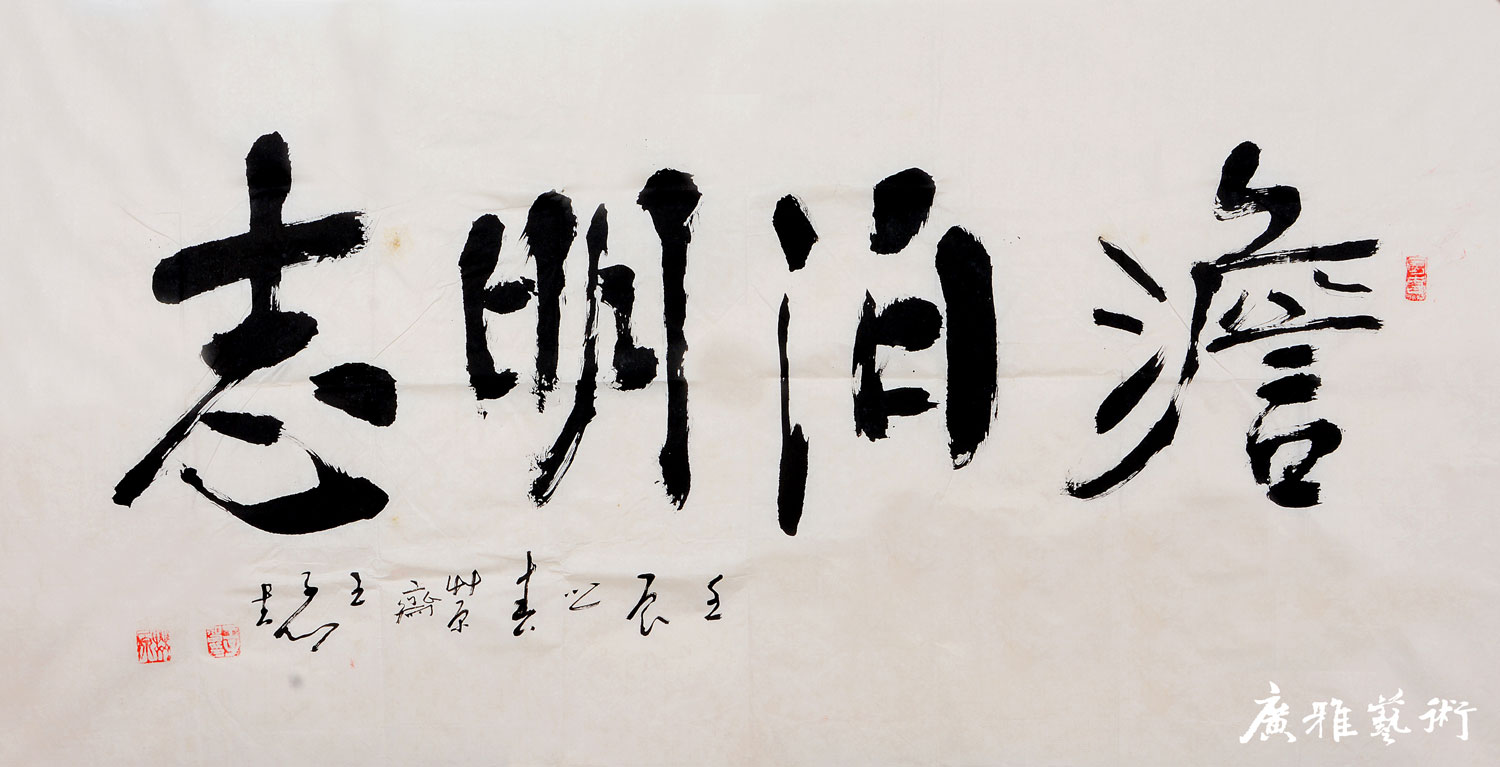 澹泊明志
壬辰之春草原齋王
廣雅藝術